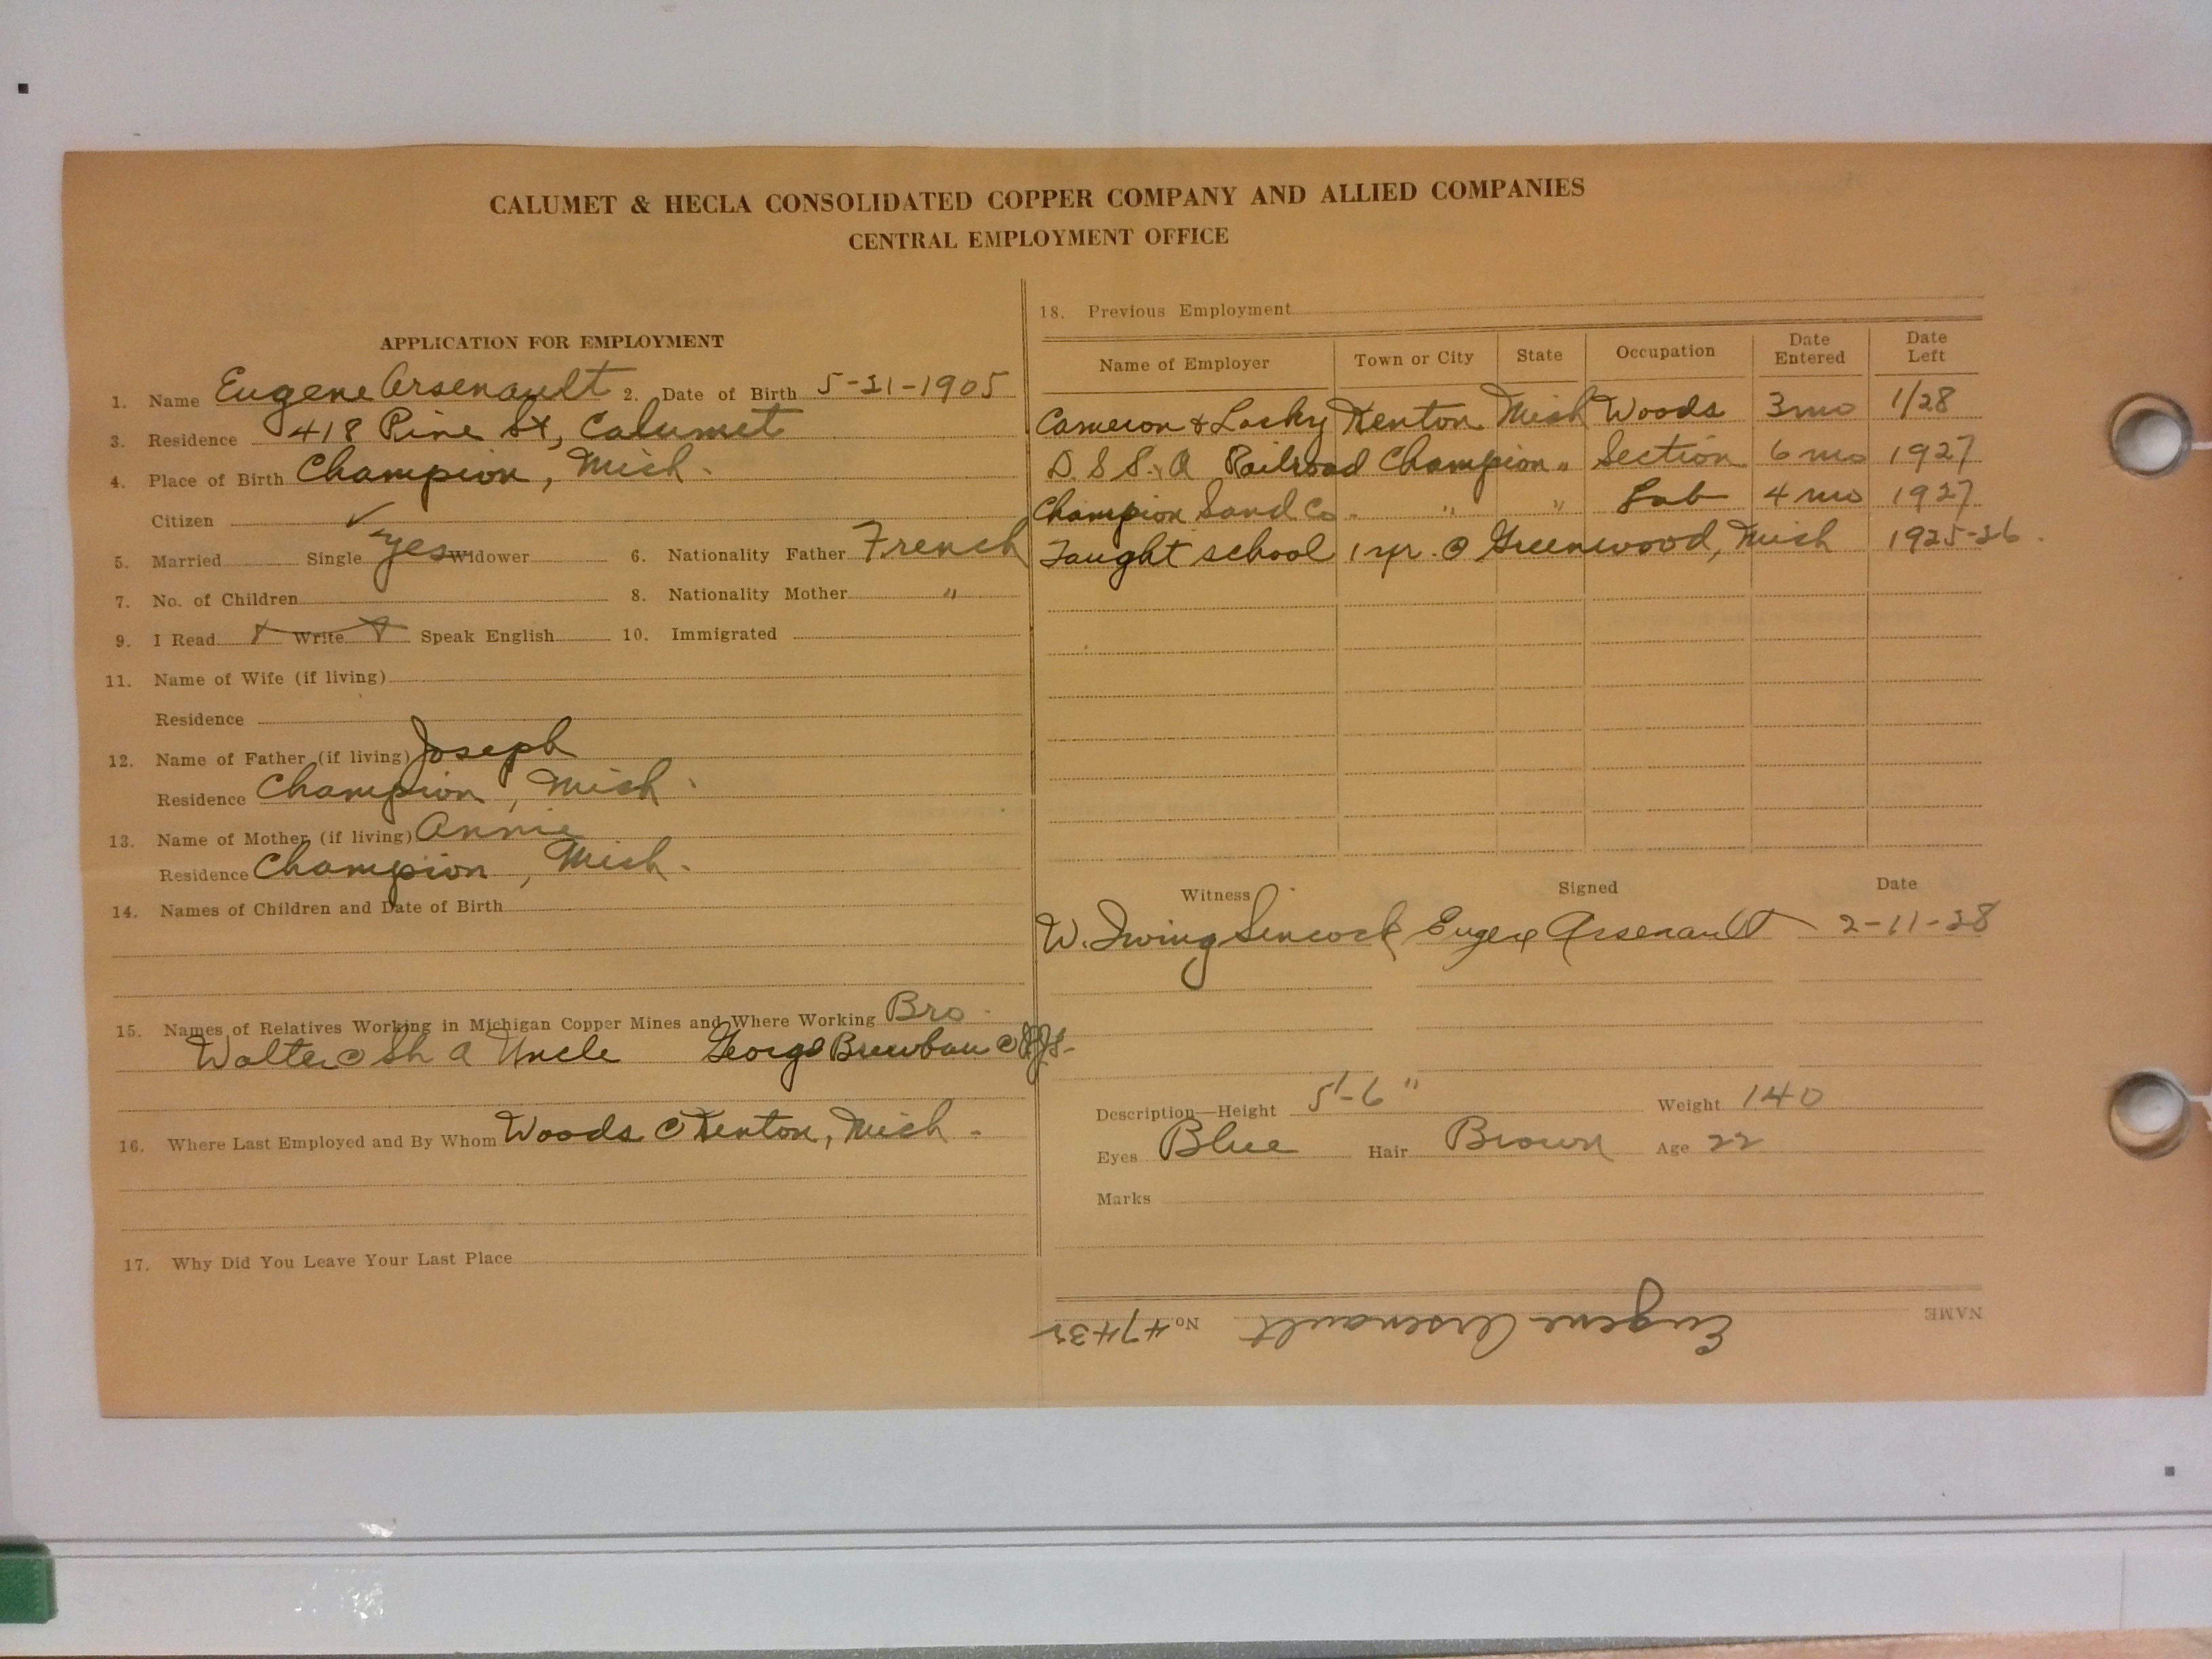 CALUMET & HECLA CONSOLIDATED COPPER COMPANY AND ALLIED COMPANIES
CENTRAL EMPLOYMENT OFFICE
APPLICATION FOR EMPLOYMENT
1. Name Eugene Arsenault 2. Date of Birth 5-21-1905
3. Residence 418 Pine St, Calumet
4. Place of Birth Champion, Mich.
Citizen ✓
5. Married Single yes Widower 6. Nationality Father French
7. No. of Children 8. Nationality Mother "
9. I Read Write Speak English 10. Immigrated
11. Name of Wife (if living)
Residence
12. Name of Father (if living) Joseph
Residence Champion, Mich.
13. Name of Mother (if living) Annie
Residence Champion, Mich.
14. Names of Children and Date of Birth
15. Names of Relatives Working in Michigan Copper Mines and Where Working Bro.
Walter @ Sh A Uncle George @
16. Where Last Employed and By Whom Woods @ Kenton, Mich.
17. Why Did You Leave Your Last Place
18. Previous Employment
Name of Employer Town or City State Occupation Date Entered Date Left
Cameron & Kenton Mich Woods 3 mo 1/28
D. S S. & A Railroad Champion " Section 6 mo 1927
Champion Sand Co. " " Lab 4 mo 1927
Taught school 1 yr. @ Greenwood, Mich 1925-26.
Witness Signed Date
W. Irving Eugene Arsenault 2-11-28
Description—Height 5'-6" Weight 140
Eyes Blue Hair Brown Age 22
Marks
NAME Eugene Arsenault No. 47432